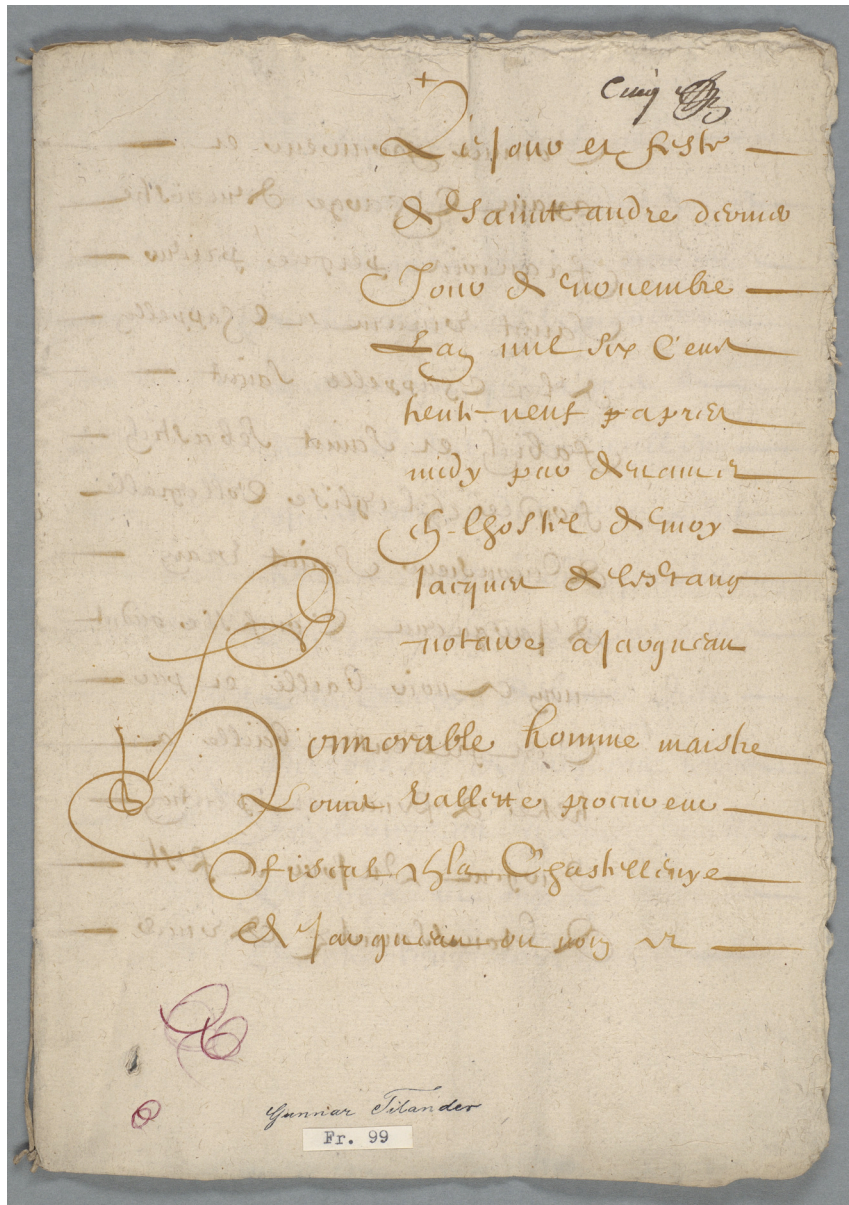 Cinq
Le Jour et feste
de Saint andre dernier
Jour de nouembre
Lan mil six Cens
trente neuf apres
midy par deuant
en lhostel de moy
Jacques de lestang
notaire a Jargueau
honnorable homme maistre
Louis Vallette procureur
fiscal en la Chastellenye
de Jargueau ou nom et
Gunnar Tilander
Fr. 99